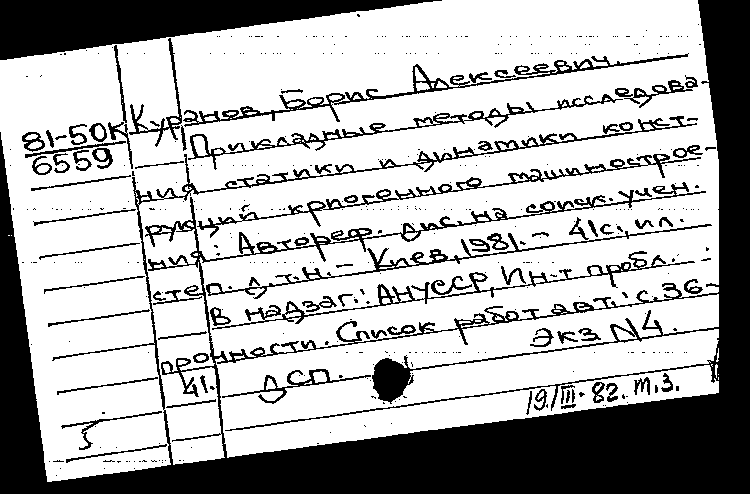 81-50К
6559
Куранов, Борис Алексеевич.
Прикладные методы исследова-
ния статики и динамики конст-
рукций криогенного машинострое-
ния: Автореф. дис. на соиск. учен.
степ. д.т.н. – Киев, 1981. – 41с., ил.
В надзаг.: АНУССР, Ин-т пробл.
прочности. Список работ авт.: с. 36-
41.
ДСП.
Экз N4.
5
19/III-82. т.з.